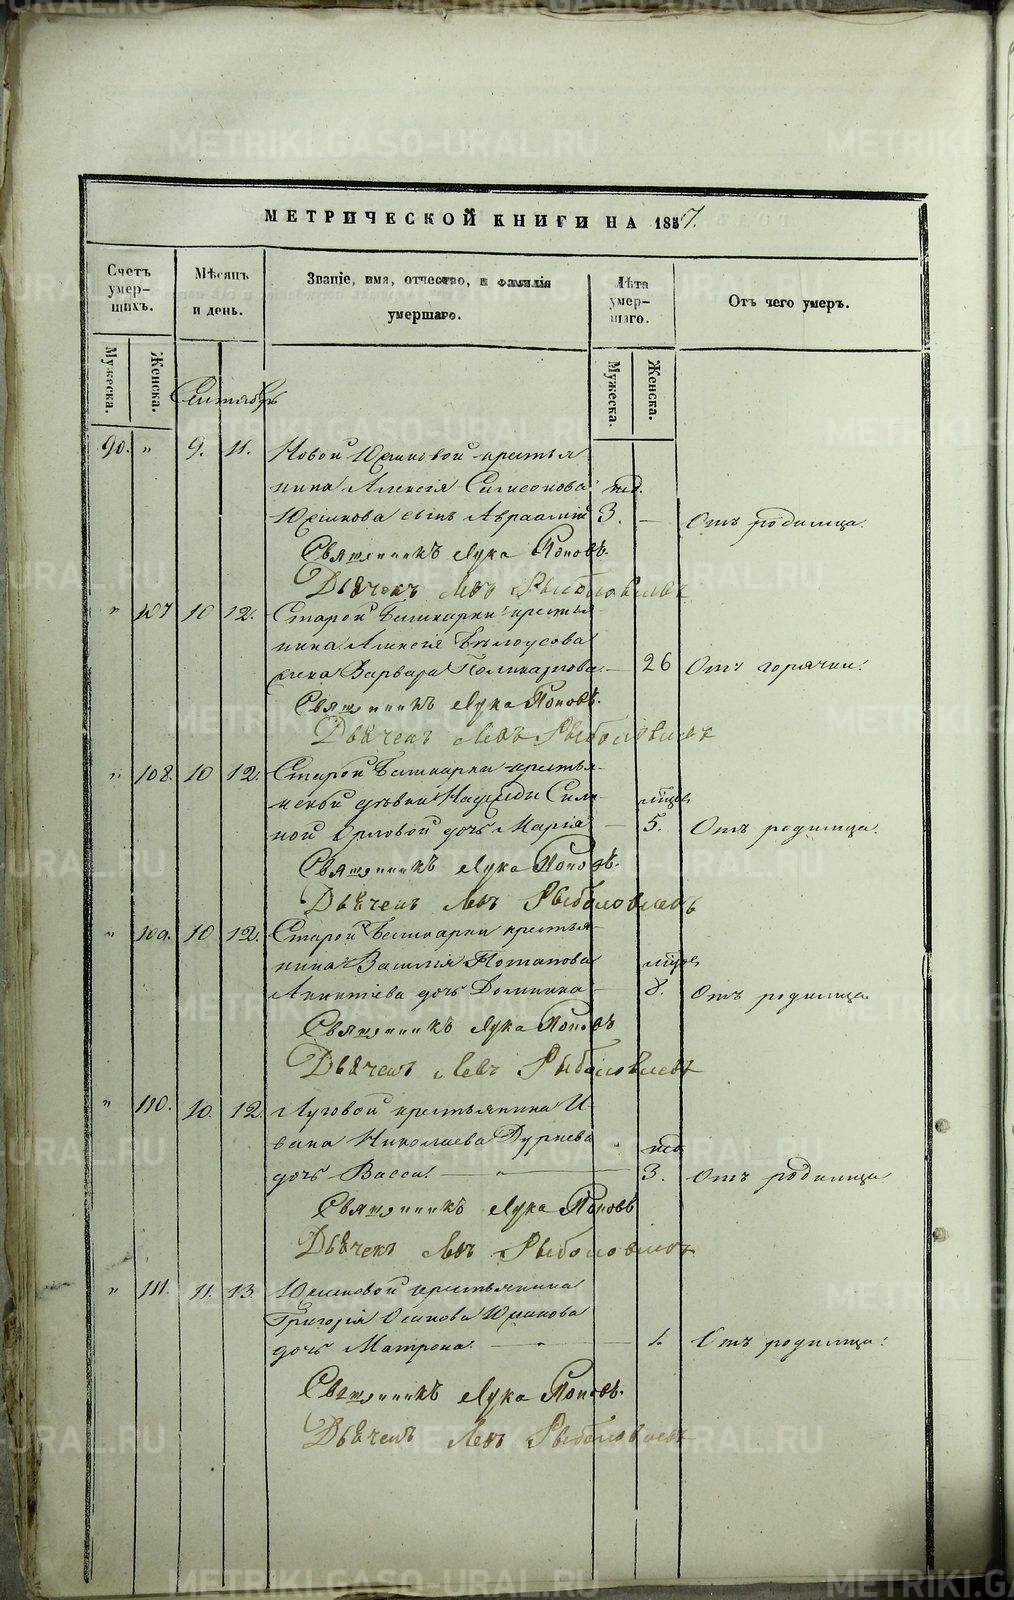 МЕТРИЧЕСКОЙ КНИГИ НА 1857.
Счетъ умер-шихъ.
Мѣсяцъ и день.
Званіе, имя, отчество, и фамилія умершаго.
Лѣта умер-шаго.
Отъ чего умеръ.
Мужеска. Женска.
Мужеска. Женска.
Сентябрь
90. " 9. 11. Новой крестья-
нина Алексія Симеонова нед.
сынъ 3. — Отъ родимца.
Священникъ Лука Поповъ.
Дьячекъ Левъ Рыболовлевъ
" 107 10 12. Старой Башкарки крестья-
нина Алексія Бѣлоусова
жена Варвара Поликарпова. — 26 Отъ горячки.
Священникъ Лука Поповъ.
Дьячекъ Левъ Рыболовлевъ
" 108. 10 12. Старой Башкарки крестья-
нской дѣвки Надежды
Орловой дочь Марія — 5. Отъ родимца.
Священникъ Лука Поповъ.
Дьячекъ Левъ Рыболовлевъ
" 109. 10 12. Старой Башкарки крестья-
нина Василія Потапова
дочь Домника — 8. Отъ родимца.
Священникъ Лука Поповъ
Дьячекъ Левъ Рыболовлевъ
" 110. 10. 12. Луговой крестьянина И-
вана Николаева нед.
дочь Васса. — " — 3. Отъ родимца
Священникъ Лука Поповъ
Дьячекъ Левъ Рыболовлевъ
" 111. 11. 13. крестьянина
Григорія Осипова
дочь Матрона. — " — 1. Отъ родимца.
Священникъ Лука Поповъ.
Дьячекъ Левъ Рыболовлевъ
METRIKI.GASO-URAL.RU